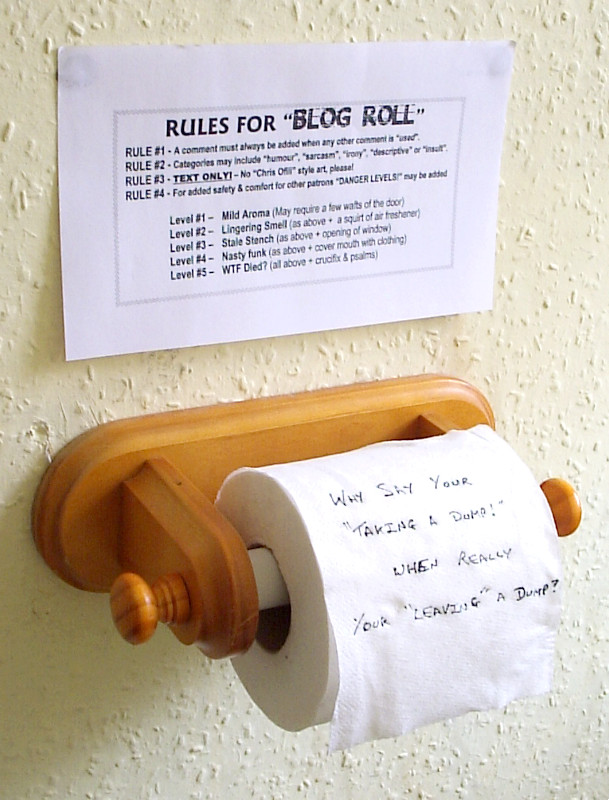 RULES FOR "BLOG ROLL"
RULE #1 - A comment must always be added when any other comment is "used".
RULE #2 - Categories may include "humour", "sarcasm", "irony", "descriptive" or "insult".
RULE #3 - TEXT ONLY! – No "Chris Ofili" style art, please!
RULE #4 - For added safety & comfort for other patrons "DANGER LEVELS!" may be added
Level #1 – Mild Aroma (May require a few wafts of the door)
Level #2 – Lingering Smell (as above + a squirt of air freshener)
Level #3 – Stale Stench (as above + opening of window)
Level #4 – Nasty funk (as above + cover mouth with clothing)
Level #5 – WTF Died? (all above + crucifix & psalms)
WHY SAY YOUR
"TAKING A DUMP!"
WHEN REALLY
YOUR "LEAVING" A DUMP?